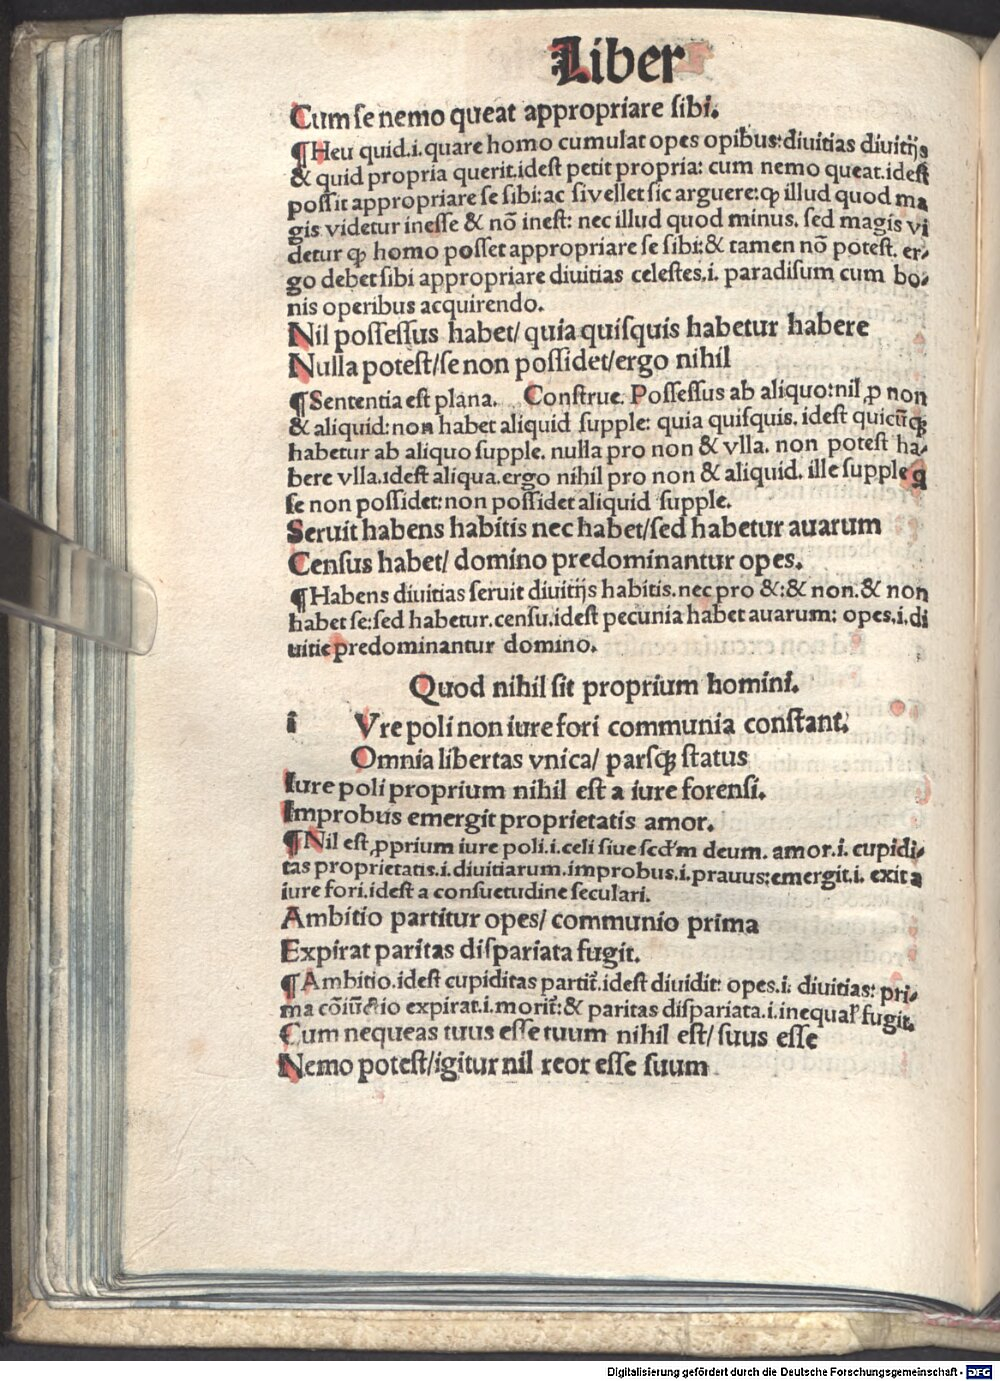 Liber
Cum se nemo queat appropriare sibi.
¶Heu quid.i.quare homo cumulat opes opibus:diuitias diuitijs
& quid propria querit.idest petit propria: cum nemo queat.idest
possit appropriare se sibi:ac si vellet sic arguere:ꝙ illud quod ma
gis videtur inesse & nõ inest: nec illud quod minus. sed magis vi
detur ꝙ homo posset appropriare se sibi:& tamen nõ potest. er-
go debet sibi appropriare diuitias celestes.i. paradisum cum bo-
nis operibus acquirendo.
Nil possessus habet/ quia quisquis habetur habere
Nulla potest/se non possidet/ergo nihil
¶Sententia est plana. Construe. Possessus ab aliquo:nil ꝓ non
& aliquid:non habet aliquid supple: quia quisquis. idest quicũqꝫ
habetur ab aliquo supple. nulla pro non & vlla. non potest ha-
bere vlla.idest aliqua.ergo nihil pro non & aliquid. ille supple q
se non possidet:non possidet aliquid supple.
Seruit habens habitis nec habet/sed habetur auarum
Census habet/ domino predominantur opes.
¶Habens diuitias seruit diuitijs habitis.nec pro &:& non.& non
habet se:sed habetur.censu.idest pecunia habet auarum: opes.i.di
uitie predominantur domino.
Quod nihil sit proprium homini.
i Vre poli non iure fori communia constant.
Omnia libertas vnica/ parsqꝫ status
Iure poli proprium nihil est a iure forensi.
Improbus emergit proprietatis amor.
¶Nil est ꝓprium iure poli.i.celi siue scd'm deum. amor.i. cupidi-
tas proprietatis.i.diuitiarum.improbus.i.prauus:emergit.i. exit a
iure fori.idest a consuetudine seculari.
Ambitio partitur opes/ communio prima
Expirat paritas dispariata fugit.
¶Ambitio.idest cupiditas partit̃.idest diuidit: opes.i: diuitias: pri-
ma expirat.i.morit̃:& paritas dispariata.i.inequal' fugit.
Cum nequeas tuus esse tuum nihil est/ suus esse
Nemo potest/igitur nil reor esse suum
Digitalisierung gefördert durch die Deutsche Forschungsgemeinschaft - DFG